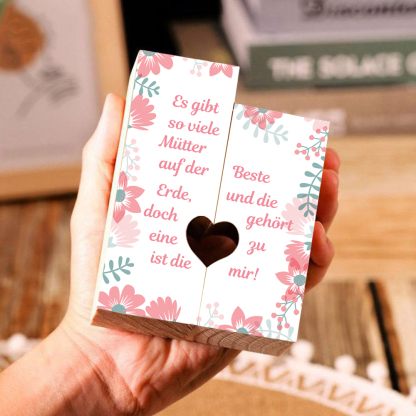 Es gibt
so viele
Mütter
auf der
Erde,
doch
eine
ist die
Beste
und die
gehört
zu
mir!
THE SOLACE O